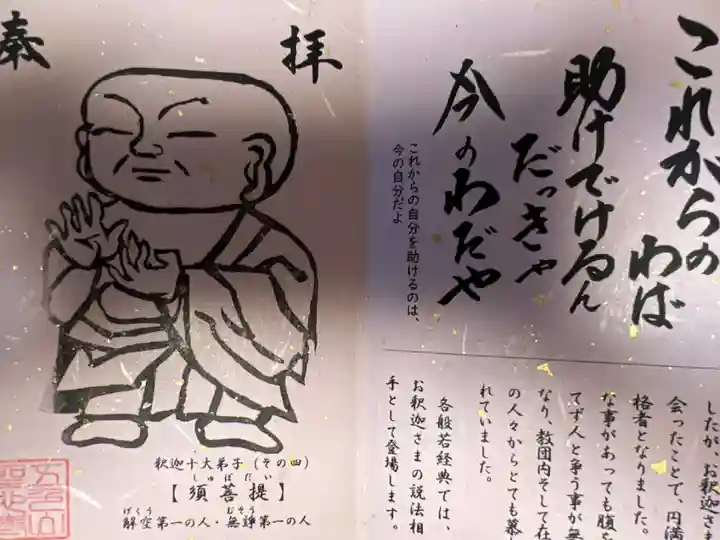 これからの
わば
助けでけるん
だっきゃ
今のわだや
これからの自分を助けるのは、
今の自分だよ
したが、お釈迦さま
会ったことで、円満
格者となりました。
な事があっても腹を
てず人と争う事が無
なり、教団内そして在
の人々からとても慕
れていました。
各般若経典では、
お釈迦さまの説法相
手として登場します。
拝
奉
釈迦十大弟子（その四）
しゅぼだい
【須菩提】
げくう むそう
解空第一の人・無諍第一の人